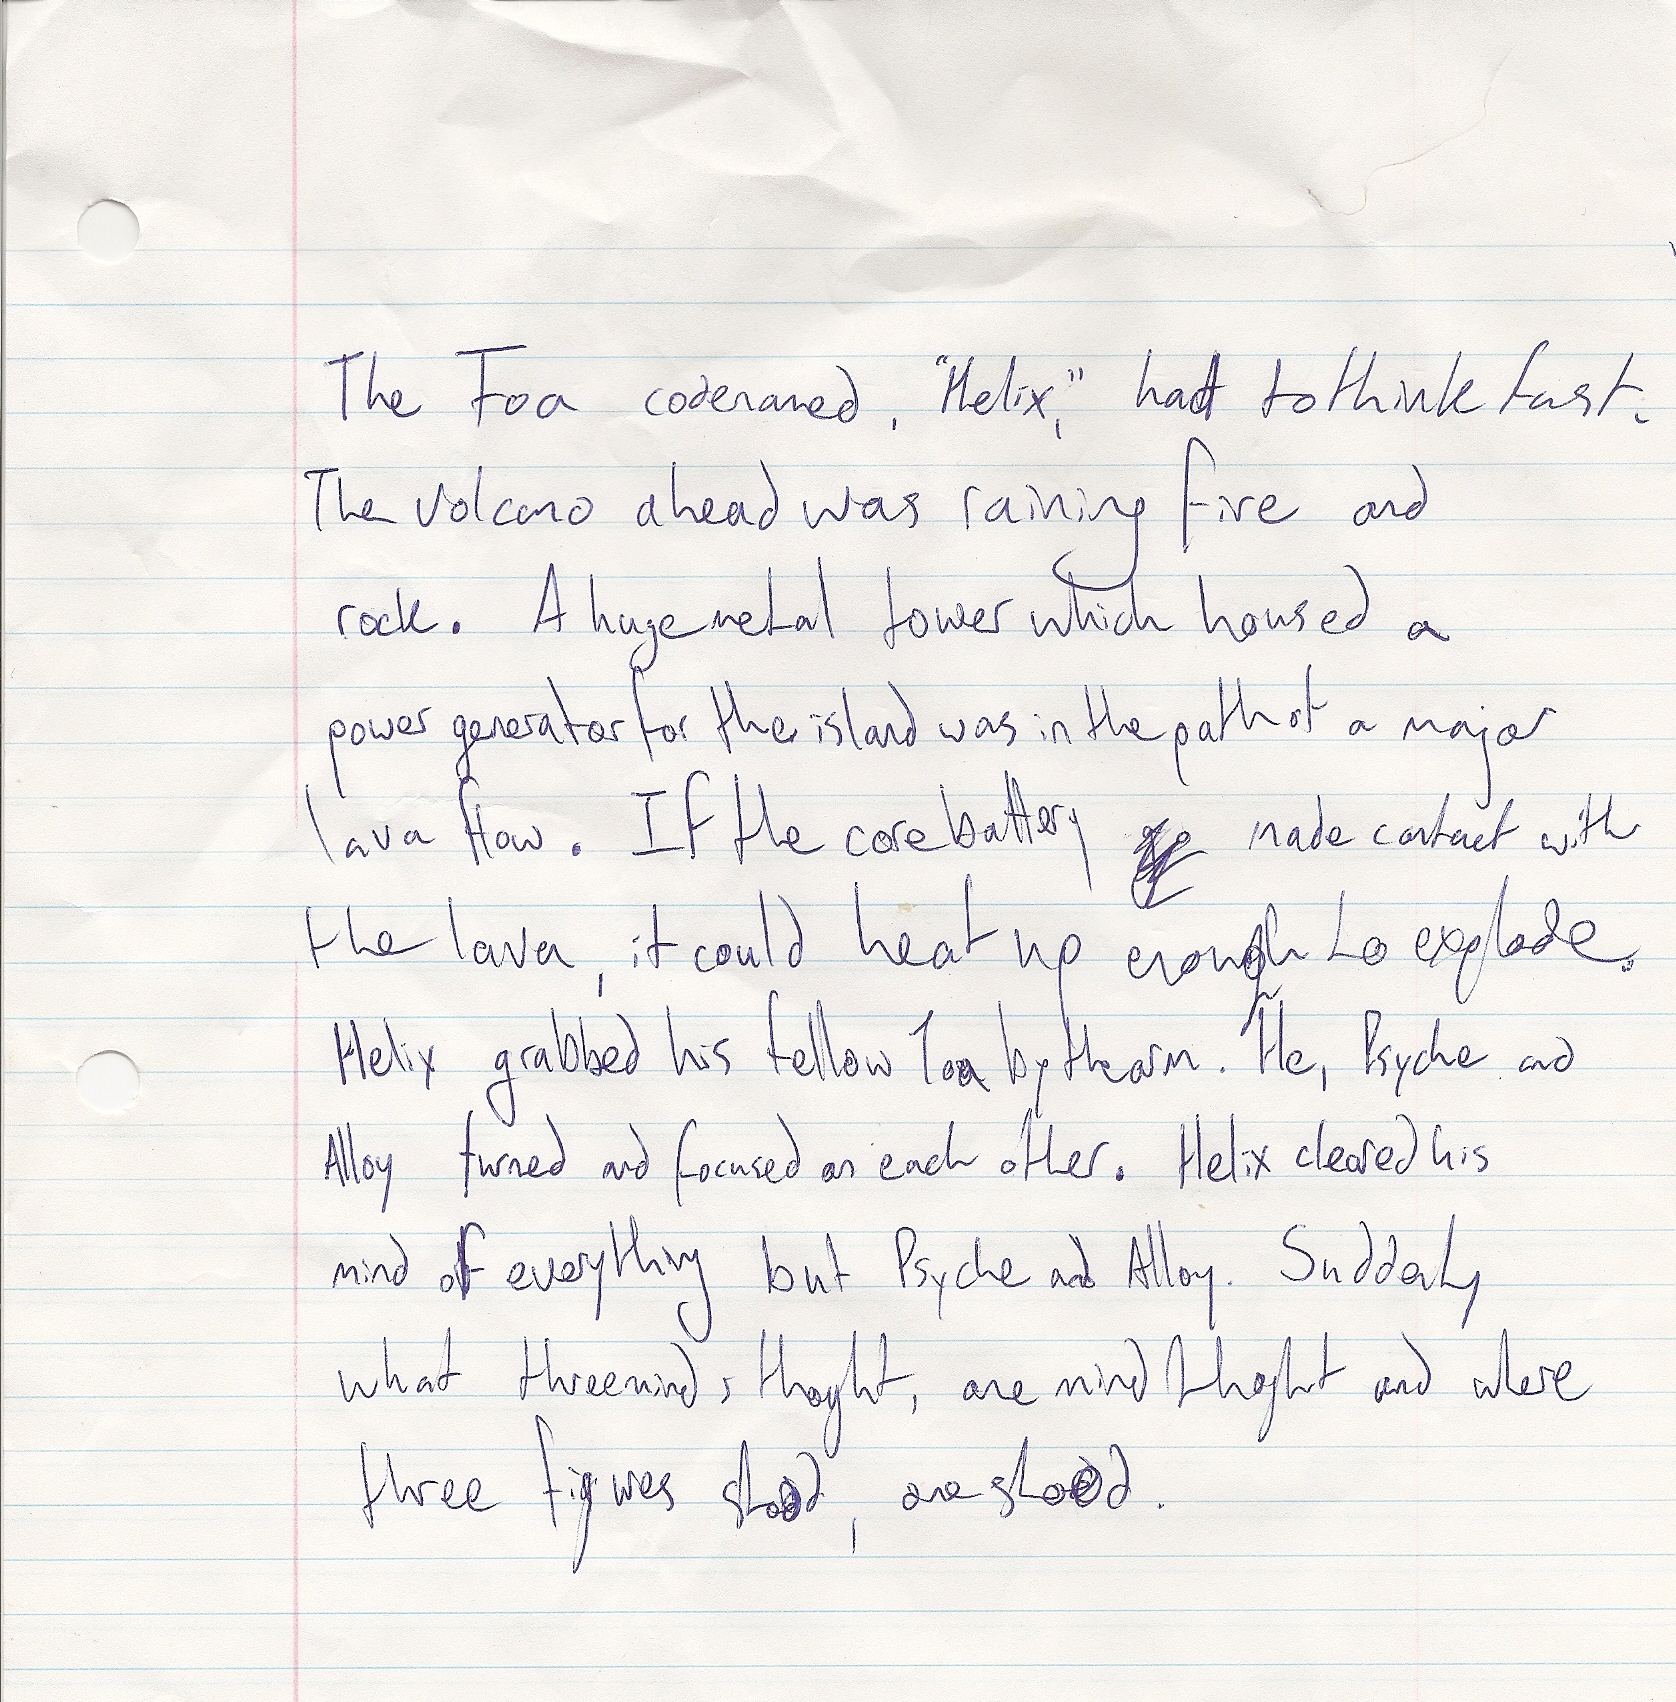 The Toa codenamed, "Helix," had to think fast.
The volcano ahead was raining fire and
rock. A huge metal tower which housed a
power generator for the island was in the path of a major
lava flow. If the core battery made contact with
the lava, it could heat up enough to explode.
Helix grabbed his fellow Toa by the arm. He, Psyche and
Alloy turned and focused on each other. Helix cleared his
mind of everything but Psyche and Alloy. Suddenly
what three minds thoght, one mind thoght and where
three figures stood, one stood.